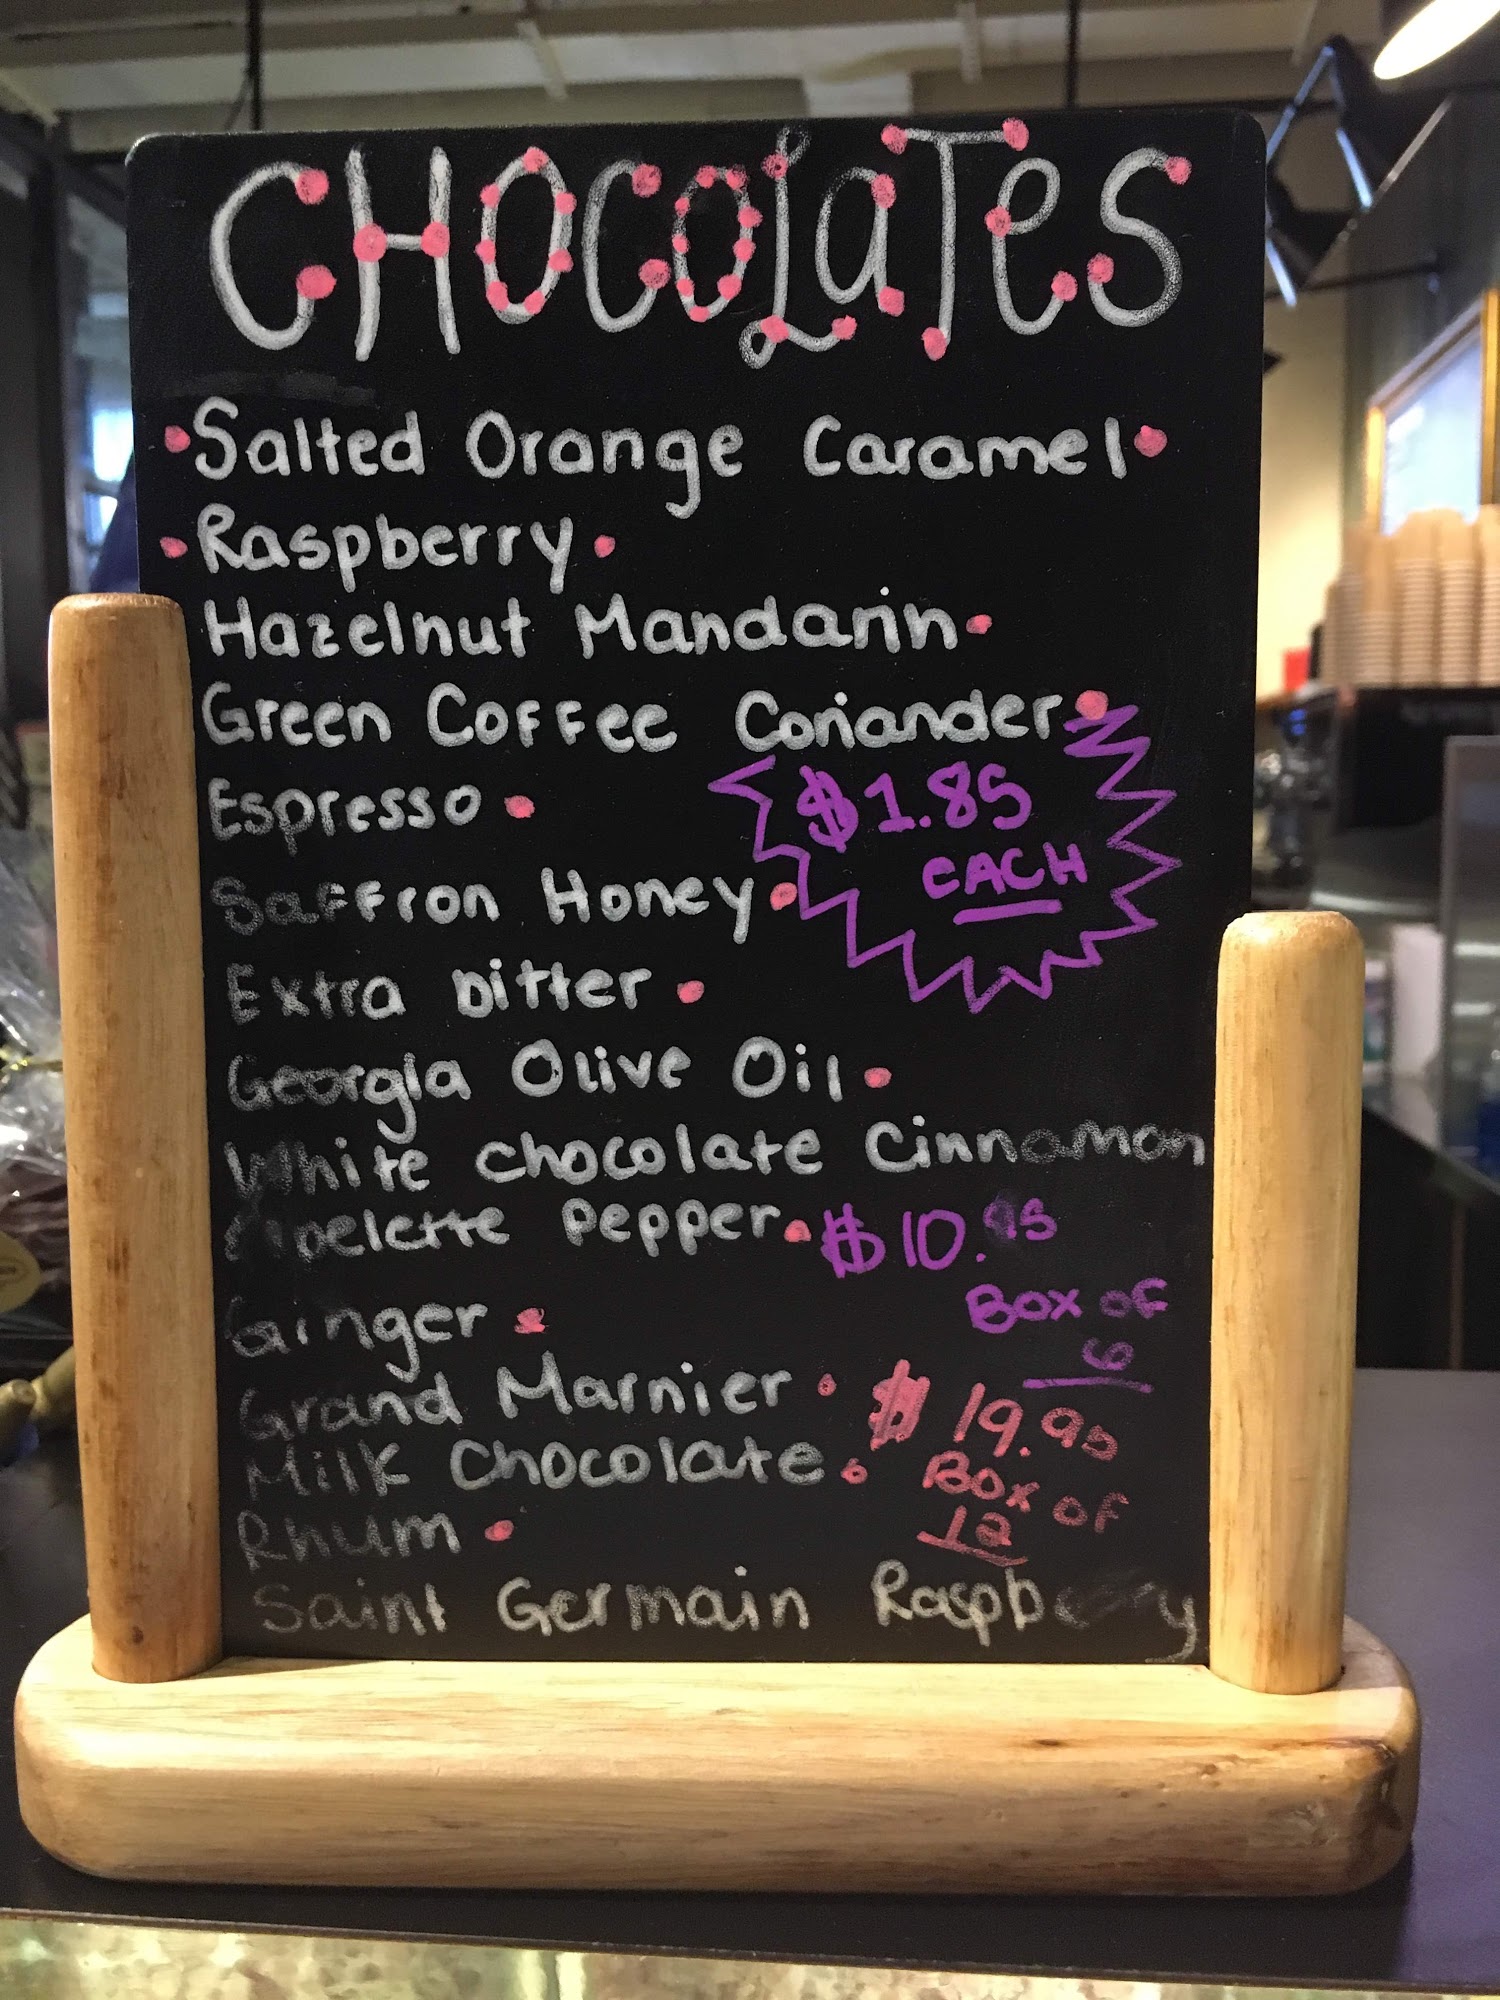 CHOCOLATES
Salted Orange Caramel
Raspberry
Hazelnut Mandarin
Green Coffee Coriander
$1.85
Espresso
EACH
Saffron Honey
Extra bitter
Georgia Olive Oil
White chocolate Cinnamon
pepper
$10.95
Box of
6
Ginger
Grand Marnier
$19.95
Milk Chocolate
Box of
12
Rhum
Saint Germain Raspberry